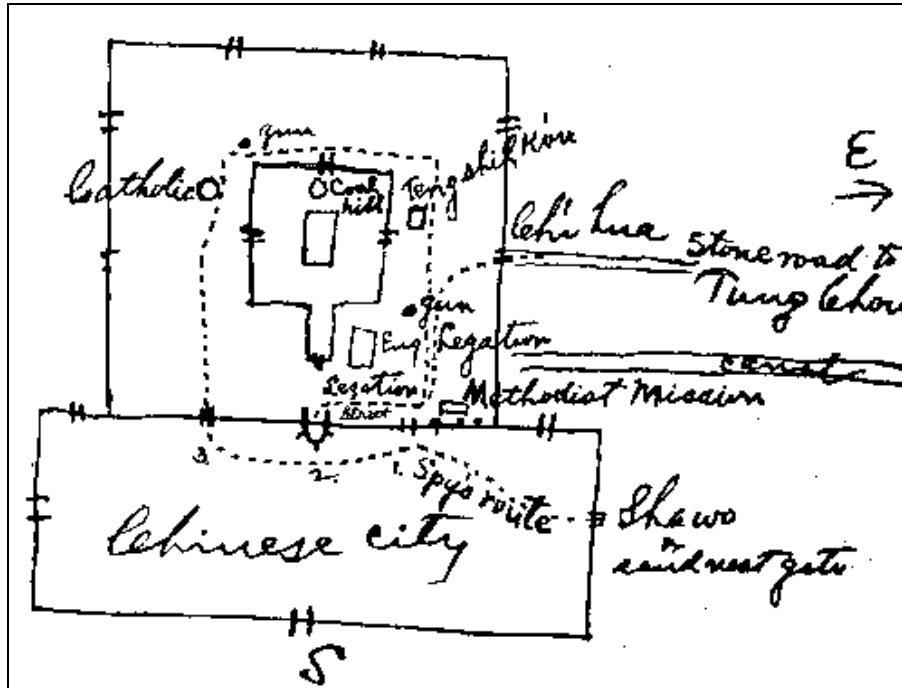 gun
Catholic
Coal
hill
Teng shih K'ou
E
Chi hua
Stone road to
Tung Chou
gun
Eng Legation
canal
Legation
Street
Methodist Mission
3.
2.
1.
Spys route
Shawo
or
sand nest gate
Chinese city
S